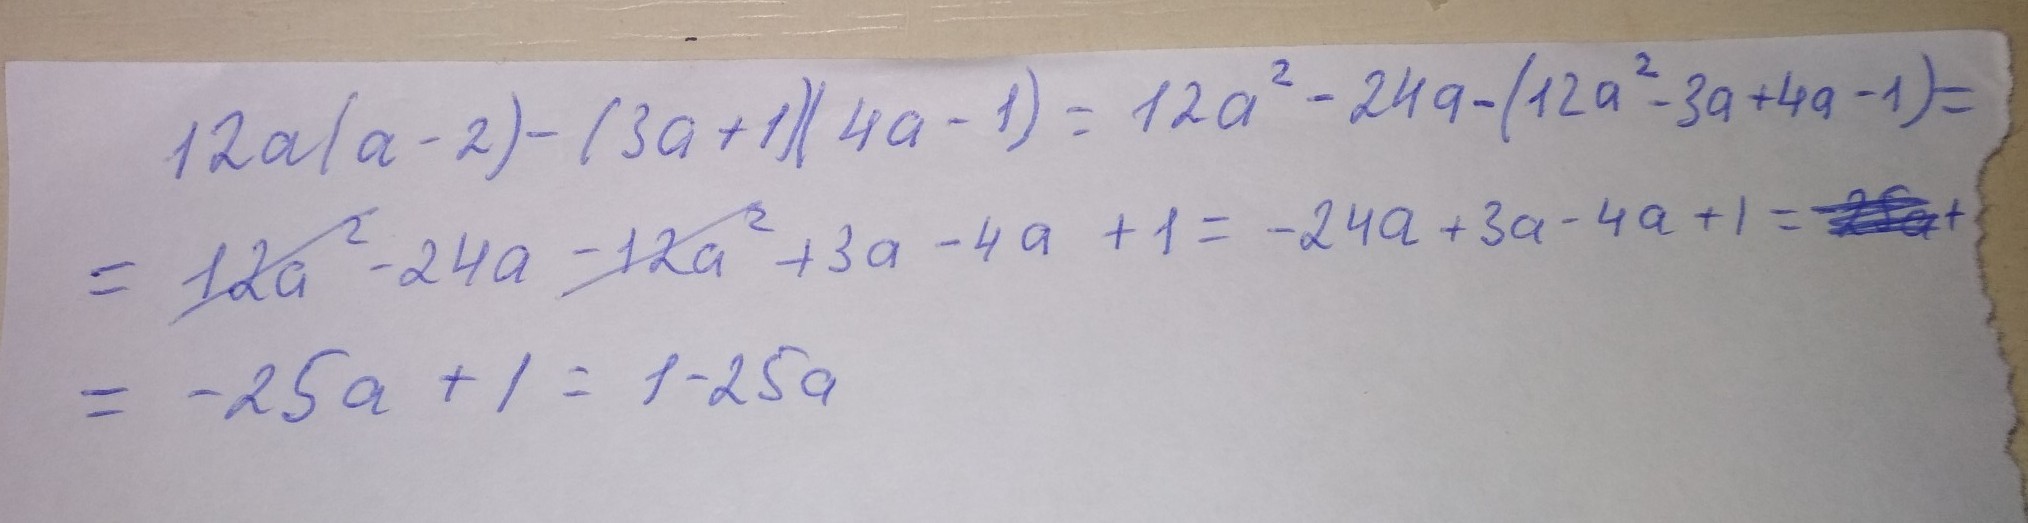 12a(a-2)-(3a+1)(4a-1)=12a²-24a-(12a²-3a+4a-1)=
=12a²-24a-12a²+3a-4a+1=-24a+3a-4a+1=+
=-25a+1=1-25a